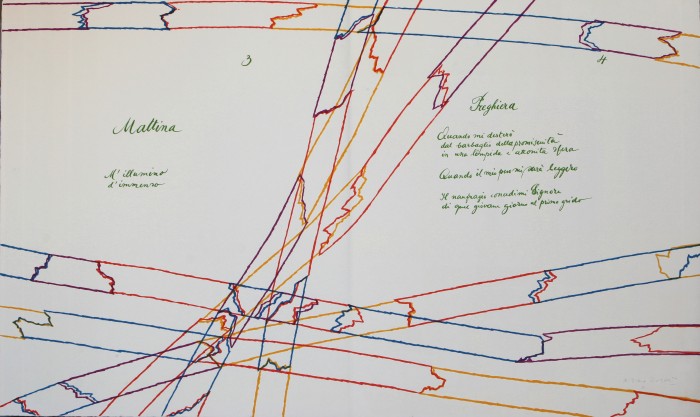 3
4
Mattina
M'illumino
d'immenso
Preghiera
Quando mi desterò
dal barbaglio della promiscuità
in una limpida e attonita sfera
Quando il mio peso mi sarà leggero
Il naufragio concedimi Signore
di quel giovane giorno al primo grido